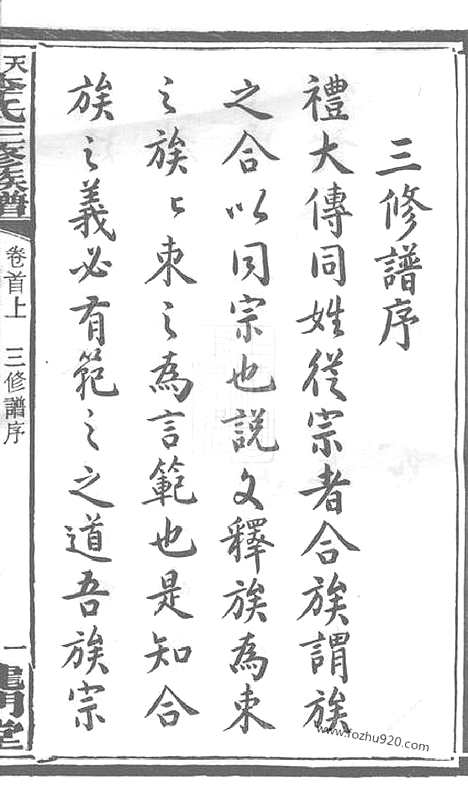 三修譜序
禮大傳同姓從宗者合族謂族
之合以同宗也說文釋族為束
之族〻束之為言範也是知合
族之義必有範之之道吾族宗
天
李氏三修族譜
卷首上 三修譜序
一
龍門堂
www.fozhu920.com